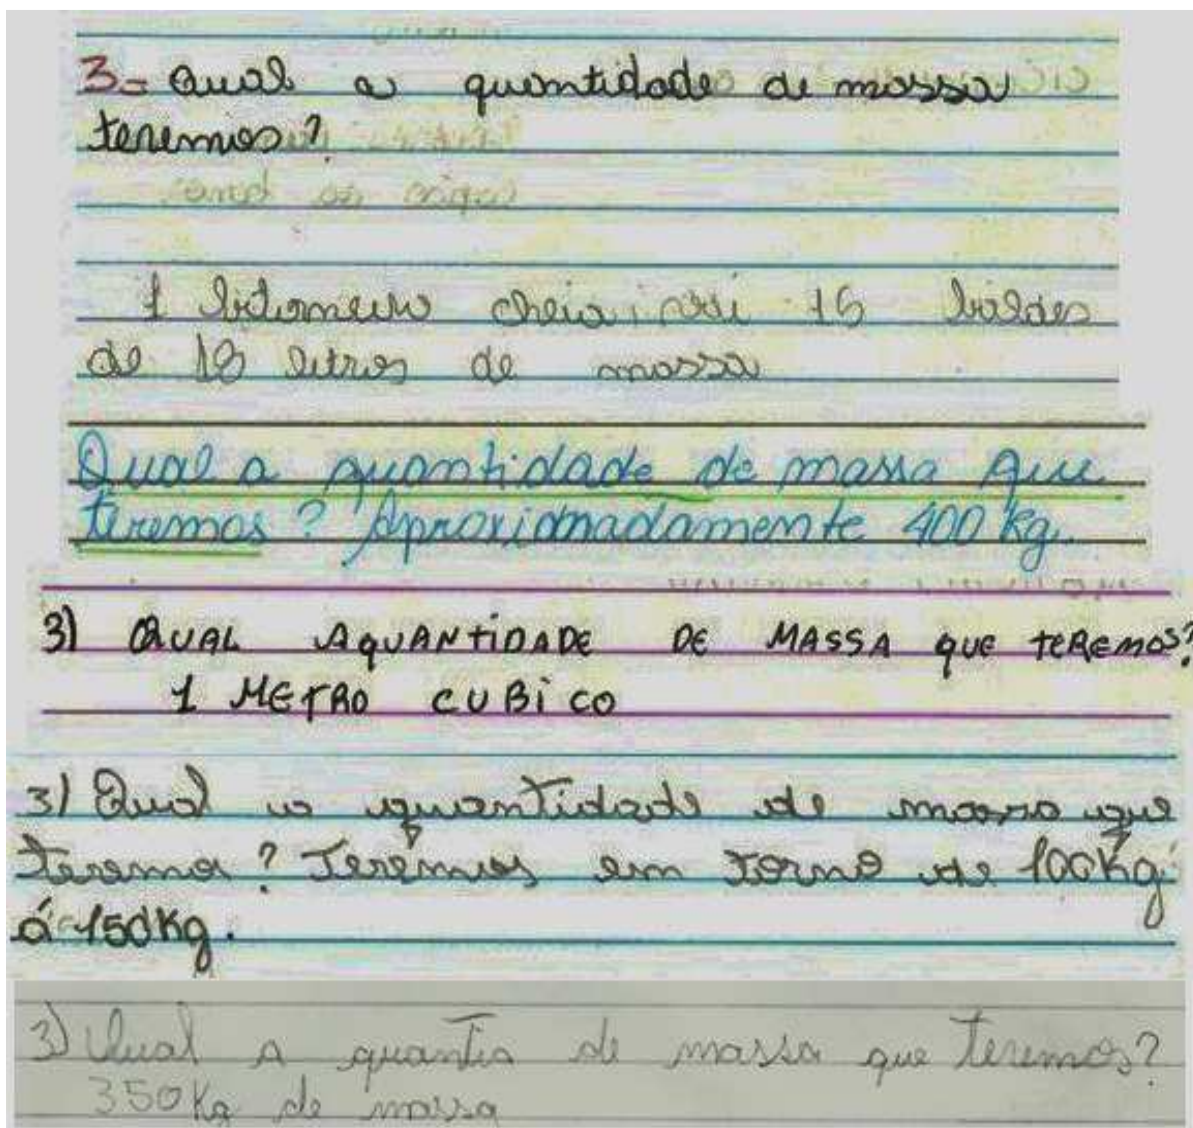 3= Qual a quantidade de massa
teremos?
1 betoneira cheia, vai 15 baldes
de 18 litros de massa
Qual a quantidade de massa que
teremos? Aproximadamente 400 kg.
3) QUAL A QUANTIDADE DE MASSA QUE TEREMOS?
1 METRO CUBICO
3) Qual a quantidade de massa que
teremos? Teremos em torno de 100Kg
á 150Kg.
3) Qual a quantia de massa que teremos?
350Kg de massa